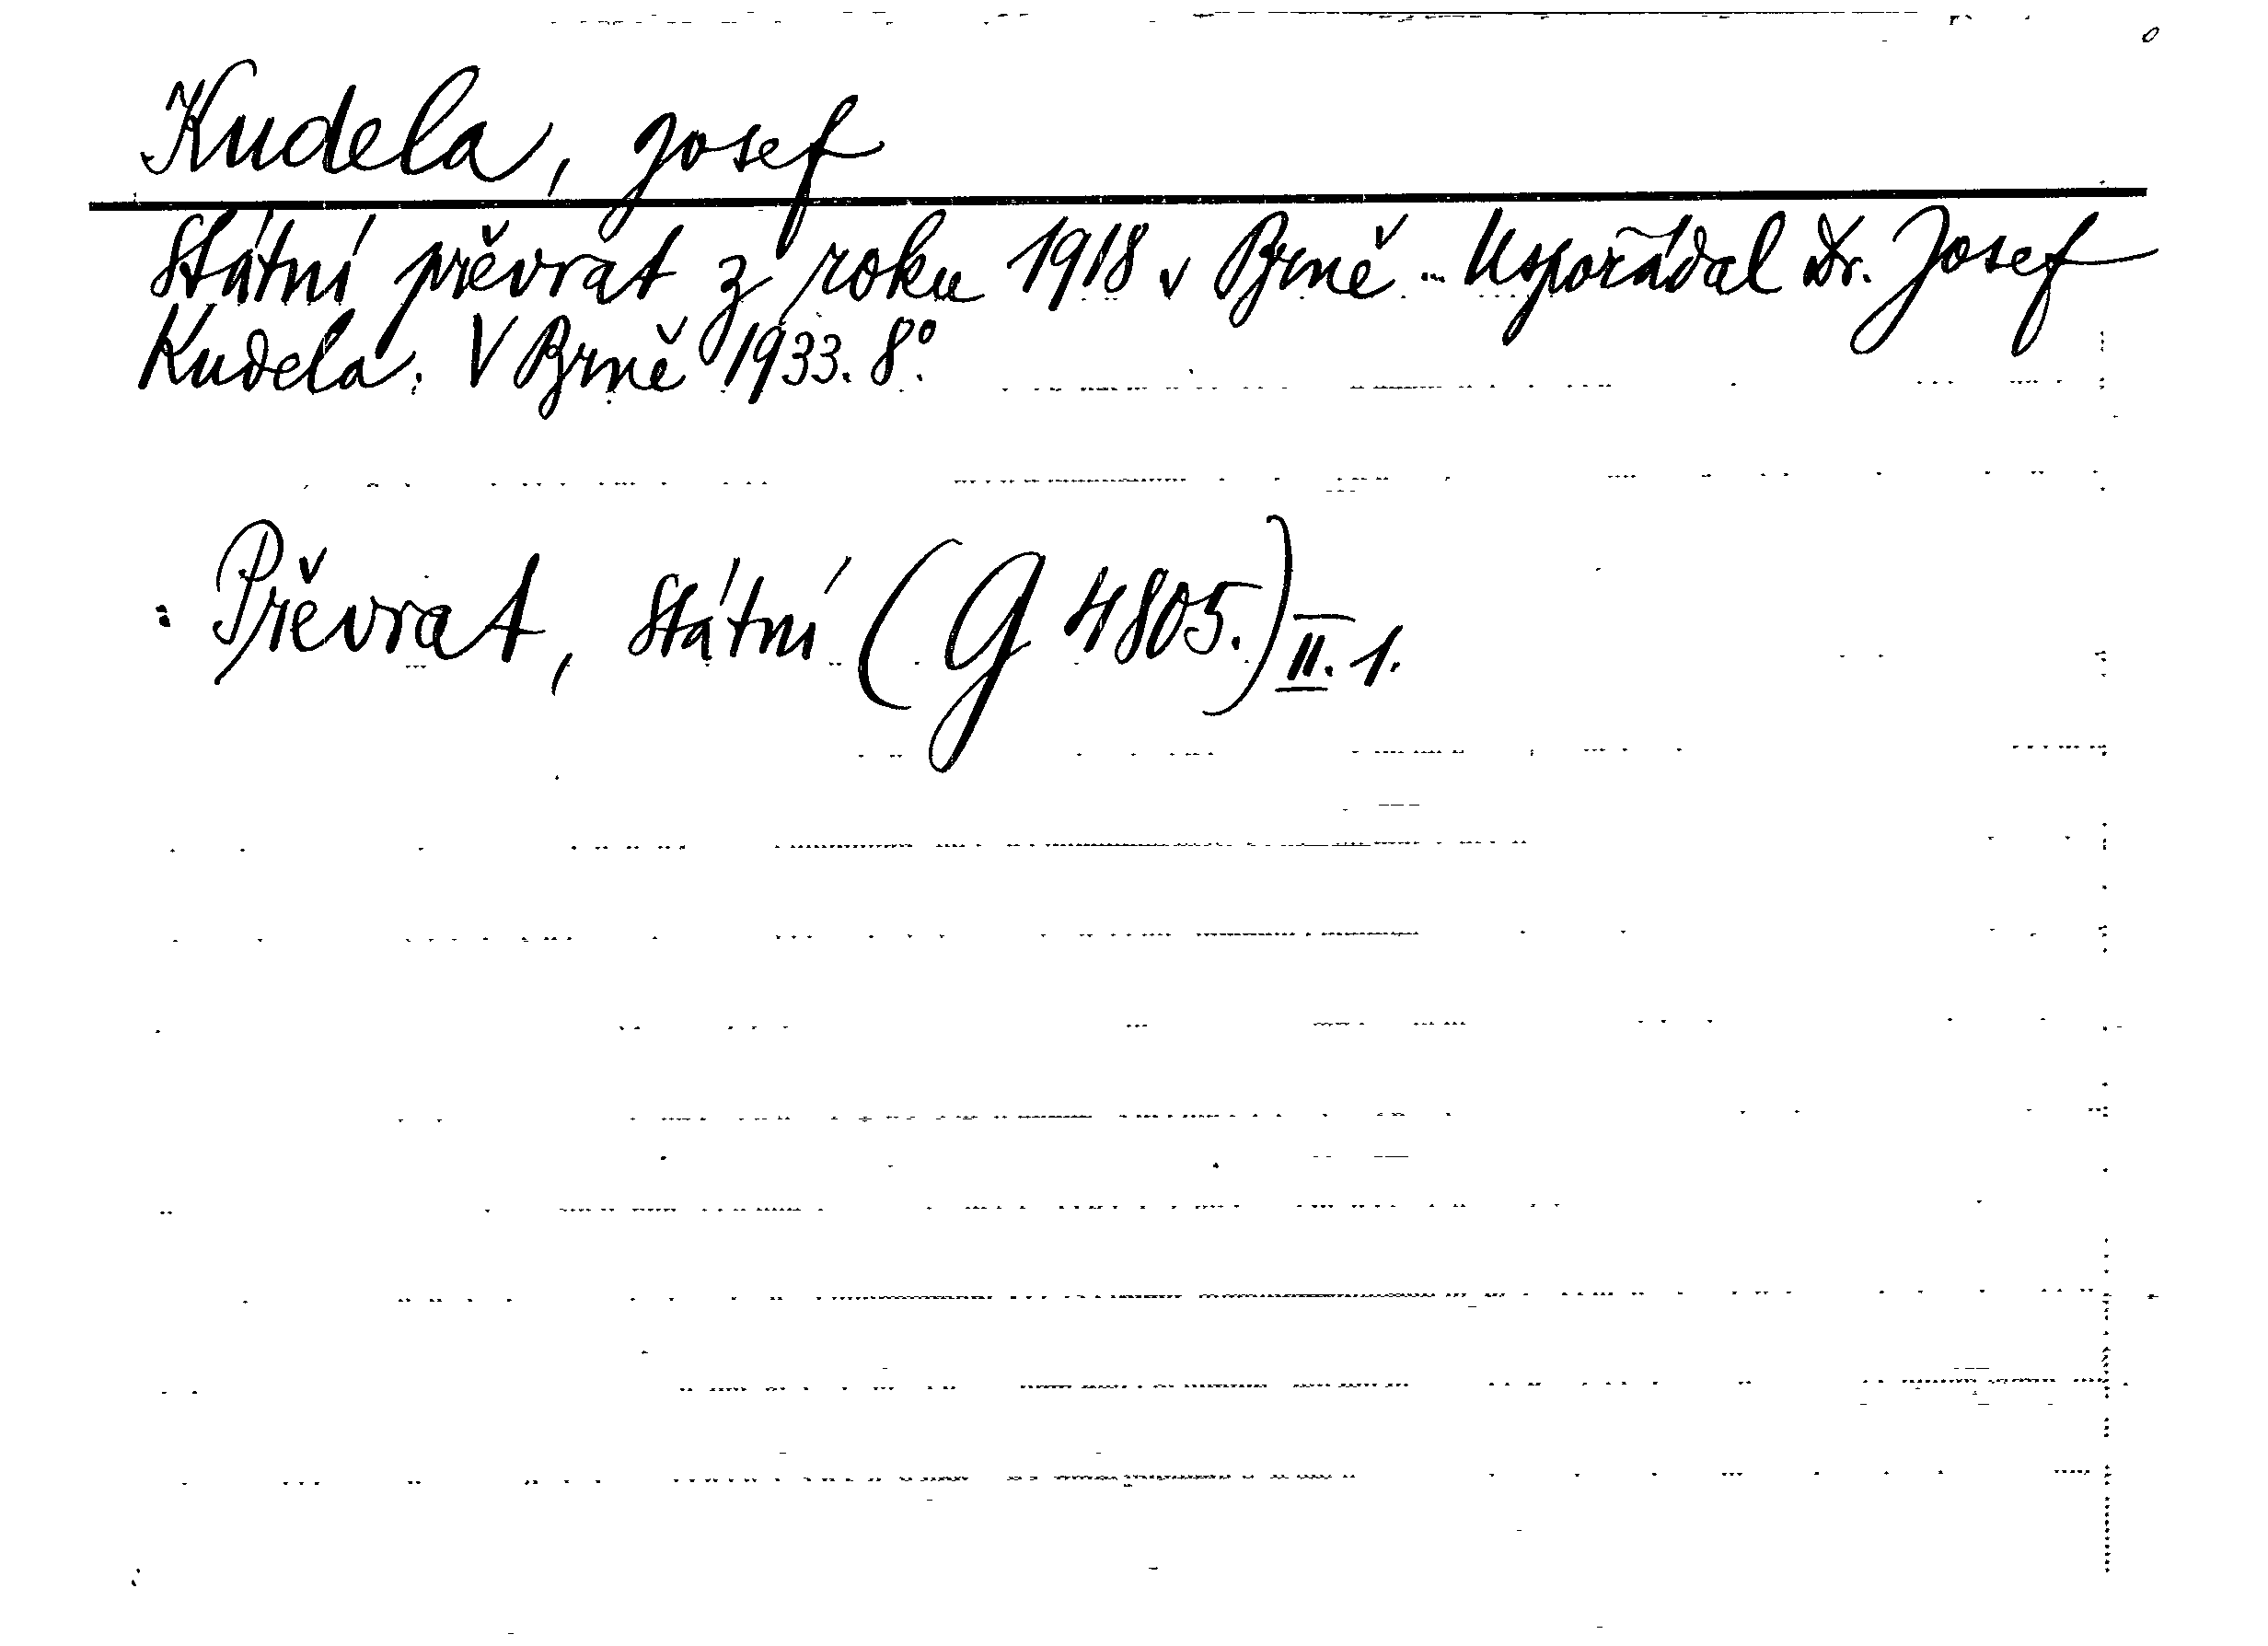 Kudela, Josef
Státní převrat z roku 1918 v Brně... Uspořádal Dr. Josef
Kudela. V Brně 1933. 8°.
: Převrat, státní (G 4805.) II. 1.